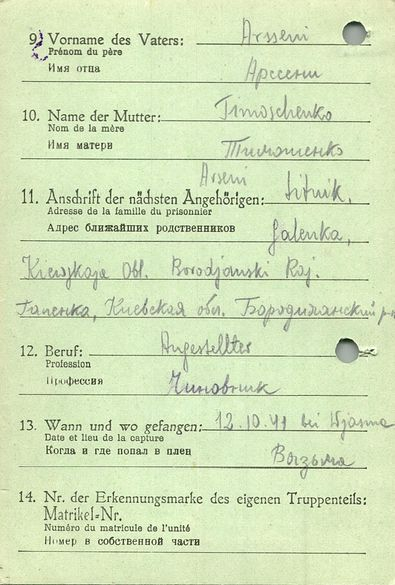 9. Vorname des Vaters: Arsseni
Prénom du père
Имя отца Арссени
10. Name der Mutter: Timoschenko
Nom de la mère
Имя матери Тимошенко
Arseni
11. Anschrift der nächsten Angehörigen: Sitnik,
Adresse de la famille du prisonnier
Адрес ближайших родственников Galenka,
Kiewskaja Obl. Borodjanski Raj.
Галенка, Киевская обл. Бородилянский р-н
12. Beruf: Angestellter
Profession
Профессия Чиновник
13. Wann und wo gefangen: 12.10.41 bei Wjasma
Date et lieu de la capture
Когда и где попал в плен Вязьма
14. Nr. der Erkennungsmarke des eigenen Truppenteils:
Matrikel=Nr.
Numéro du matricule de l'unité
Номер в собственной части